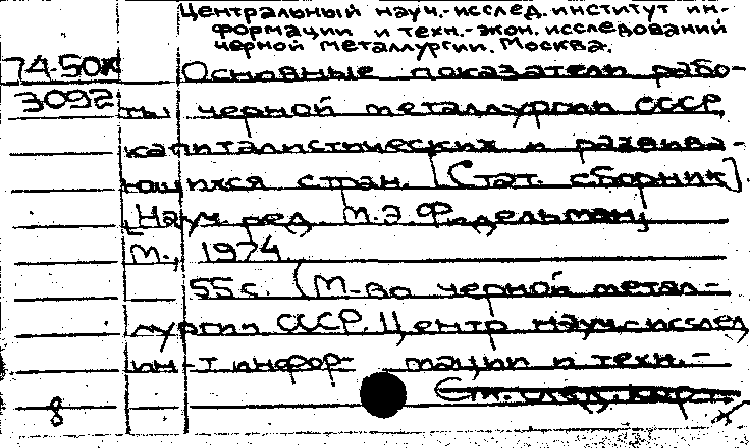 Центральный науч.-исслед. институт ин-
формации и техн.-экон. исследований
черной металлургии. Москва.
74-50к Основные показатели рабо-
3092 ты черной металлургии СССР,
капиталистических и развива-
ющихся стран. [Стат. сборник].
[Науч. ред. М.Э. Фидельман]
М., 1974.
55 с. (М-во черной метал-
лургии СССР. Центр. науч.-исслед.
ин-т информации и техн.-
См. след. карт.
8